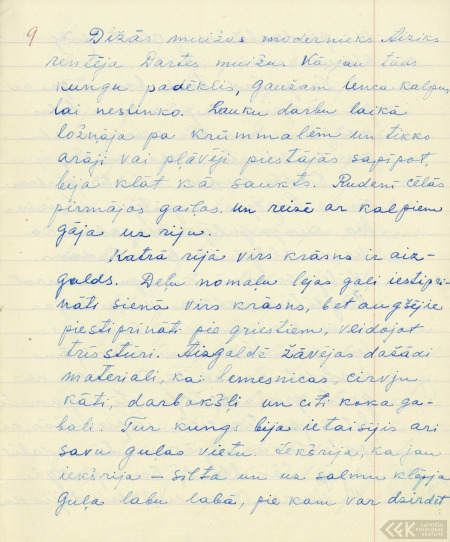 9
Dižās muižas modernieks Aiziks
rentēja Dartes muižu. Kā jau tāds
kungu padēklis, gaužam lenca kalpus,
lai neslinko. Lauku darbu laikā
ložņāja pa krūmmalēm un tikko
arāji vai pļāvēji piestājās sapīpot,
bija klāt kā saukts. Rudenī cēlās
pirmajos gaiļos un reizē ar kalpiem
gāja uz riju.
Katrā rijā virs krāsns ir aiz-
galds. Deļu nomaļu lejas gali iestipri-
nāti sienā virs krāsns, bet augšējie
piestiprināti pie griestiem, veidojot
trīsstūri. Aizgaldē žāvējas dažādi
materiali, kā: lemesnīcas, cirvju
kāti, darbokšļi un citi koka ga-
bali. Tur kungs bija ietaisījis arī
savu guļas vietu. Iekšrija, kā jau
iekšrija – silta un uz salmu klēpja
guļa labu labā, pie kam var dzirdēt
LATVIEŠU FOLKLORAS KRĀTUVE